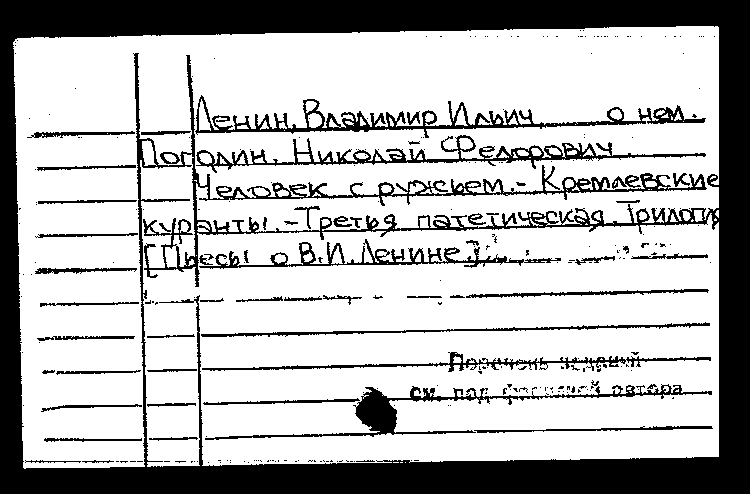 Ленин, Владимир Ильич, о нем.
Погодин, Николай Федорович.
Человек с ружьем.- Кремлевские
куранты.-Третья патетическая. Трилогия
[Пьесы о В.И.Ленине]
Перечень изданий
см. под фамилией автора